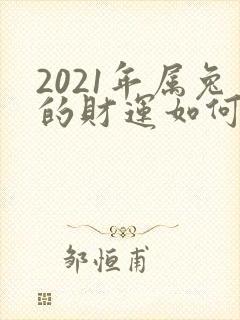 2021年属兔
的财运如何
邹恒甫